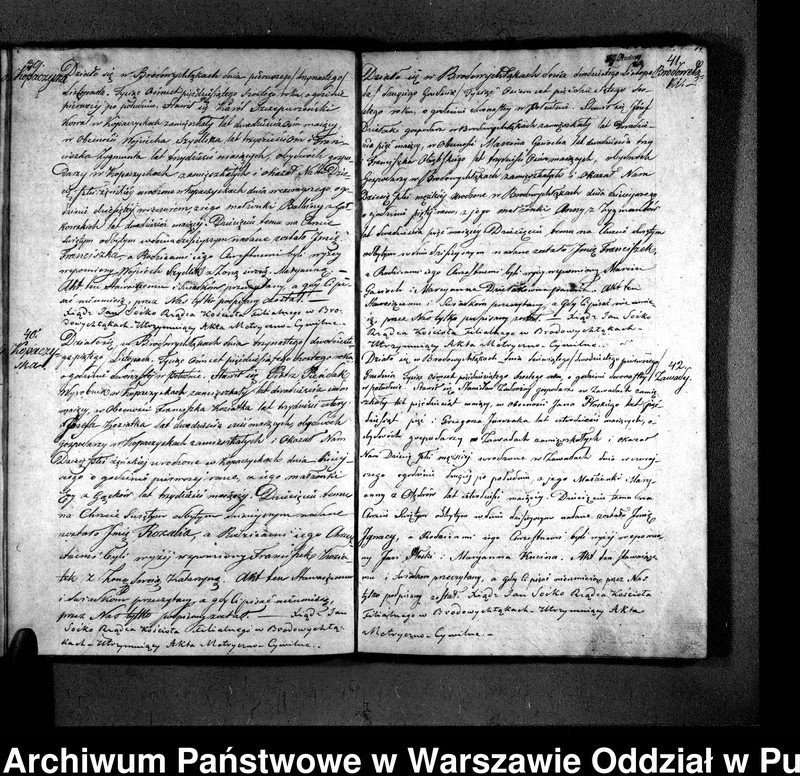 39.
Kopaczyska
Działo się w Brodowychłąkach dnia pierwszego/trzynastego/
Listopada, Tysiąc Ośmset pięćdziesiątego Szóstego roku, o godzinie
pierwszej po południu, Stawił się Karól Szczepurzeński
Kowal w Kopaczyskach zamieszkały lat dwadzieścia Ośm mający,
w Obecności Wojciecha Szydlika lat trzydzieści Ośm i Fran-
ciszka Zygmunta lat trzydzieści mających, obydwóch gospo-
darzy w Kopaczyskach zamieszkałych i okazał Nam Dzie-
cię płci żeńskiej urodzone w Kopaczyskach dnia wczorajszego o go-
dzinie dziesiątej wieczorem z jego małżonki Balbiny z
lat dwadzieścia mającej. Dziecięciu temu na Chrzcie
Świętym odbytym w dniu dzisiejszym nadane zostało Imię
Franciszka, a Rodzicami jego Chrzestnemi byli wyżej
wspomniony Wojciech Szydlik z Żoną swoją Maryanną. —
Akt ten Stawającemu i Świadkom przeczytany, a gdy Ci pi-
sać nieumieją, przez Nas tylko podpisany został. —
Xiądz Jan Sośko Rządca Kościoła Filialnego w Bro-
dowychłąkach Utrzymujący Akta Metryczno-Cywilne. —
40.
Kopaczy-
ska
Działo się w Brodowychłąkach dnia trzynastego/dwudzieste-
go piątego Listopada, Tysiąc Ośmset pięćdziesiątego Szóstego roku
o godzinie dwunastej w południe. Stawił się Piotr
Wyrobnik w Kopaczyskach zamieszkały lat dwadzieścia
mający, w Obecności Franciszka Koziatka lat trzydzieści cztery
i Józefa Koziatka lat dwadzieścia mających, obydwóch
gospodarzy w Kopaczyskach zamieszkałych i Okazał Nam
Dziecię płci żeńskiej urodzone w Kopaczyskach dnia bieżą-
cego o godzinie pierwszej rano, z jego małżonki
z Gąsków lat trzydzieści mającej. Dziecięciu temu
na Chrzcie Świętym odbytym dnia dzisiejszym nadane
zostało Imię Rozalia, a Rodzicami jego Chrze-
stnemi byli wyżej wspomniony Franciszek Kozia-
tek z Żoną Swoją Katarzyną. Akt ten Stawającemu
i Świadkom przeczytany, a gdy Ci pisać nieumieją,
przez Nas tylko podpisany został. — Xiądz Jan
Sośko Rządca Kościoła Filialnego w Brodowychłą-
kach Utrzymujący Akta Metryczno-Cywilne. .
41.
Brodowe
Łąki
Działo się w Brodowychłąkach dnia dwudziestego Listopa-
da/drugiego Grudnia/Tysiąc Ośmset pięćdziesiątego Szó-
stego roku, o godzinie dwunastej w Południe. Stawił się Józef
Dziatek gospodarz w Brodowychłąkach zamieszkały lat dwadzie-
ścia pięć mający, w Obecności Marcina Gawrycha lat dwadzieścia trzy
i Franciszka lat trzydzieści Ośm mających, obydwóch
Gospodarzy w Brodowychłąkach zamieszkałych i Okazał Nam
Dziecię płci męskiej urodzone w Brodowychłąkach dnia dzisiejszego
o godzinie piątej rano, z jego małżonki Anny z Zygmuntów
lat dwadzieścia pięć mającej. Dziecięciu temu na Chrzcie Świętym
odbytym w dniu dzisiejszym nadane zostało Imię Franciszek,
a Rodzicami jego Chrzestnemi byli wyżej wspomniony Marcin
Gawrych i Maryanna Akt ten
Stawającemu i Świadkom przeczytany, a gdy Ci pisać nieumie-
ją, przez Nas tylko podpisany został — Xiądz Jan Sośko
Rządca Kościoła Filialnego w Brodowychłąkach
Utrzymujący Akta Metryczno-Cywilne.
42.
Zawady.
Działo się w Brodowychłąkach, dnia dziewiątego/dwudziestego pierwszego
Grudnia Tysiąc Ośmset pięćdziesiątego Szóstego roku, o godzinie dwunastej
w południe. Stawił się Stanisław gospodarz w Zawadach zamie-
szkały lat pięćdziesiąt mający, w obecności Jana Płoskiego lat pięć-
dziesiąt pięć i Grzegorza lat czterdzieści mających,
obydwóch gospodarzy w Zawadach zamieszkałych i okazał
Nam Dziecię płci męskiej urodzone w Zawadach dnia wczoraj-
szego o godzinie drugiej po południu, z jego Małżonki Mary-
anny z lat czterdzieści mającej. Dziecięciu temu na
Chrzcie Świętym odbytym w dniu dzisiejszym nadane zostało Imię
Ignacy, a Rodzicami jego Chrzestnemi byli wyżej wspomnio-
ny Jan Płoski i Maryanna Kucina. Akt ten Stawające-
mu i Świadkom przeczytany, a gdy Ci pisać nieumieją, przez Nas
tylko podpisany został. Xiądz Jan Sośko Rządca Kościoła
Filialnego w Brodowychłąkach Utrzymujący Akta
Metryczno-Cywilne. —
Archiwum Państwowe w Warszawie Oddział w Pu